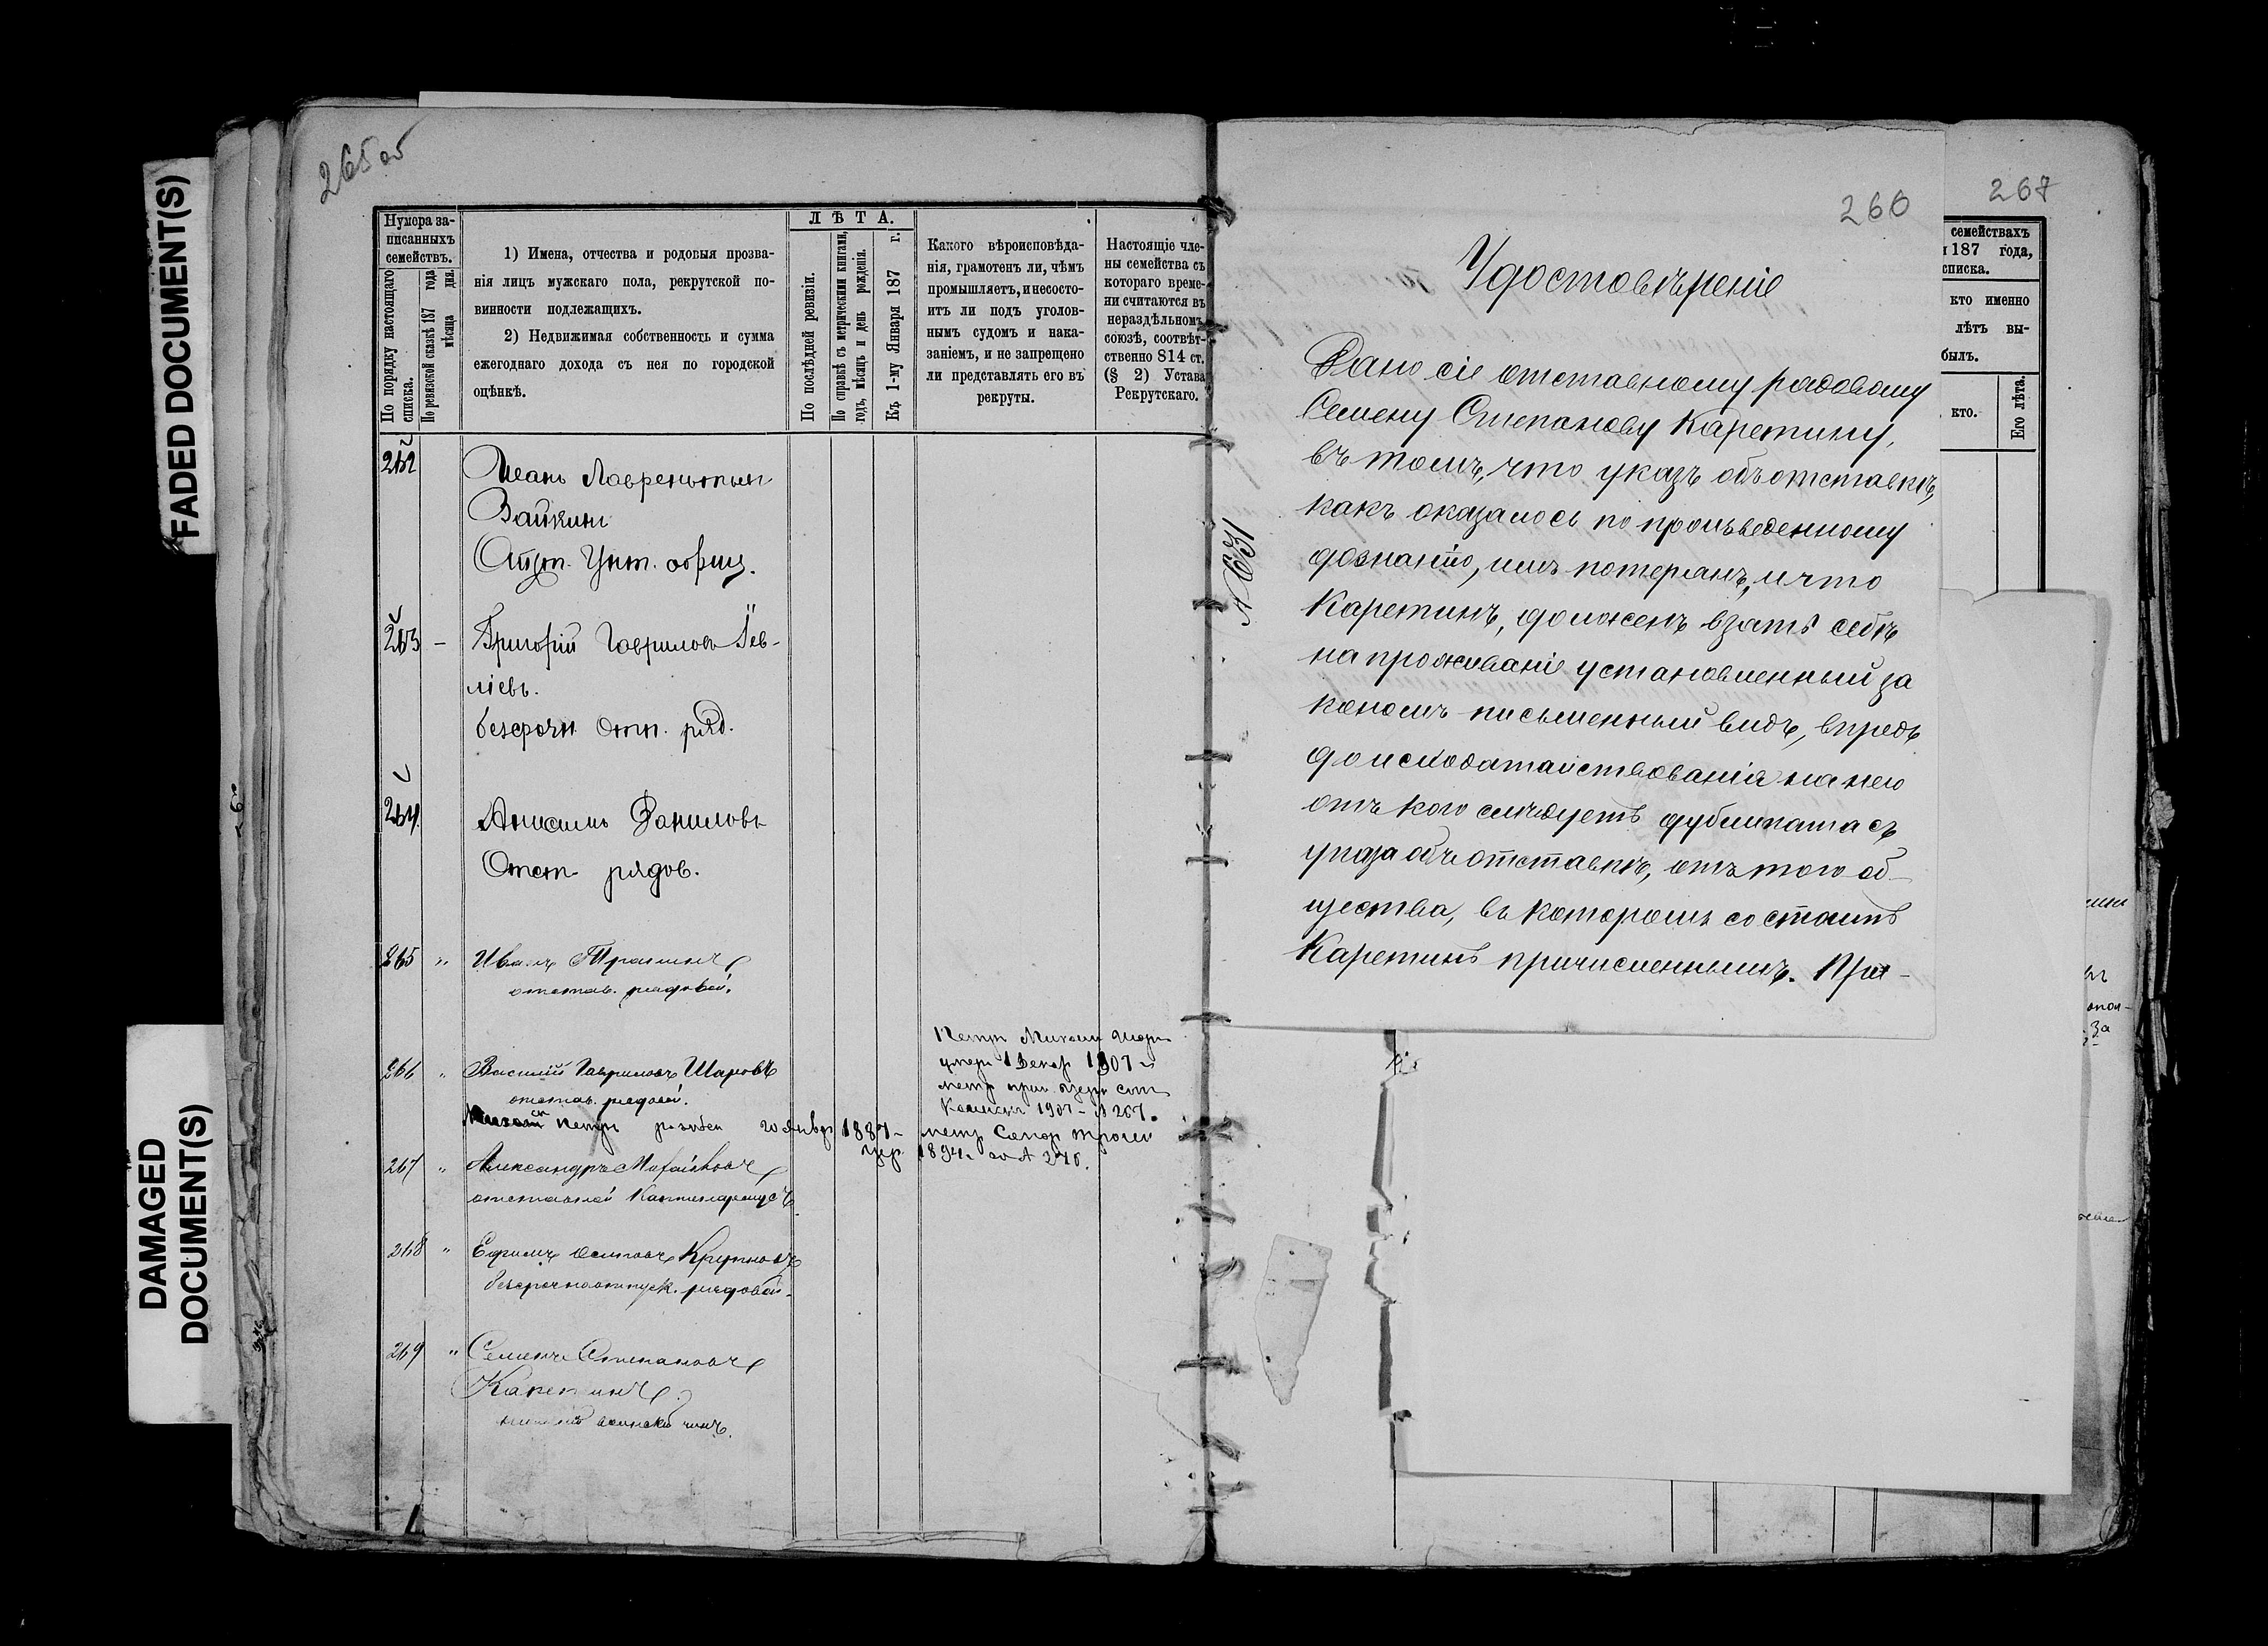 FADED DOCUMENT(S)
DAMAGED
DOCUMENT(S)
265 об
Нумера за-
писанныхъ
семействъ.
По порядку настоящаго
списка.
По ревизской сказкѣ 187 года
мѣсяца дня.
1) Имена, отчества и родовыя прозва-
нія лицъ мужскаго пола, рекрутской по-
винности подлежащихъ.
2) Недвижимая собственность и сумма
ежегоднаго дохода съ нея по городской
оцѣнкѣ.
ЛѢТА.
По послѣдней ревизіи.
По справкѣ съ метрическими книгами,
годъ, мѣсяцъ и день рожденія.
Къ 1-му Января 187 г.
Какого вѣроисповѣда-
нія, грамотенъ ли, чѣмъ
промышляетъ, и несосто-
итъ ли подъ уголов-
нымъ судомъ и нака-
заніемъ, и не запрещено
ли представлять его въ
рекруты.
Настоящіе чле-
ны семейства съ
котораго време-
ни считаются въ
нераздѣльномъ
союзѣ, соотвѣт-
ственно 814 ст.
(§ 2) Устава
Рекрутскаго.
262
Иванъ Лаврентьевъ
Зайкинъ
Унт. офиц.
263 –
Григорій Гавриловъ Іев-
лievъ.
безсрочн. Отп. ряд.
264
Анисимъ Даниловъ
Отст. рядов.
265 "
Иванъ
отстав. рядовой.
266 "
Василій Гавриловъ Шаровъ
отстав. рядовой.
Петръ 20 Январ 1887 –
Петръ
1907
1907 – № 267.
1894.
267 "
Александръ
отставной
268 "
Ефимъ Осиповъ Крупновъ
безсрочноотпуск. рядовой.
269 "
Семенъ Степановъ
Каретинъ
воинскій чинъ.
266
№ 631
Удостовѣреніе
Дано сіе отставному рядовому
Семену Степанову Каретину,
въ томъ, что указъ объ отставкѣ,
какъ оказалось по произведенному
дознанію, имъ потерянъ, и что
Каретинъ, долженъ взять себѣ
на проживаніе установленный за
кономъ письменный видъ, впредь
до исходатайствованія на него
отъ кого слѣдуетъ дубликата съ
указа объ отставкѣ, отъ того об-
щества, въ которомъ состоитъ
Каретинъ причисленнымъ. При-
267
семействахъ
187 года,
списка.
кто именно
лѣтъ вы-
былъ.
кто.
Его лѣта.